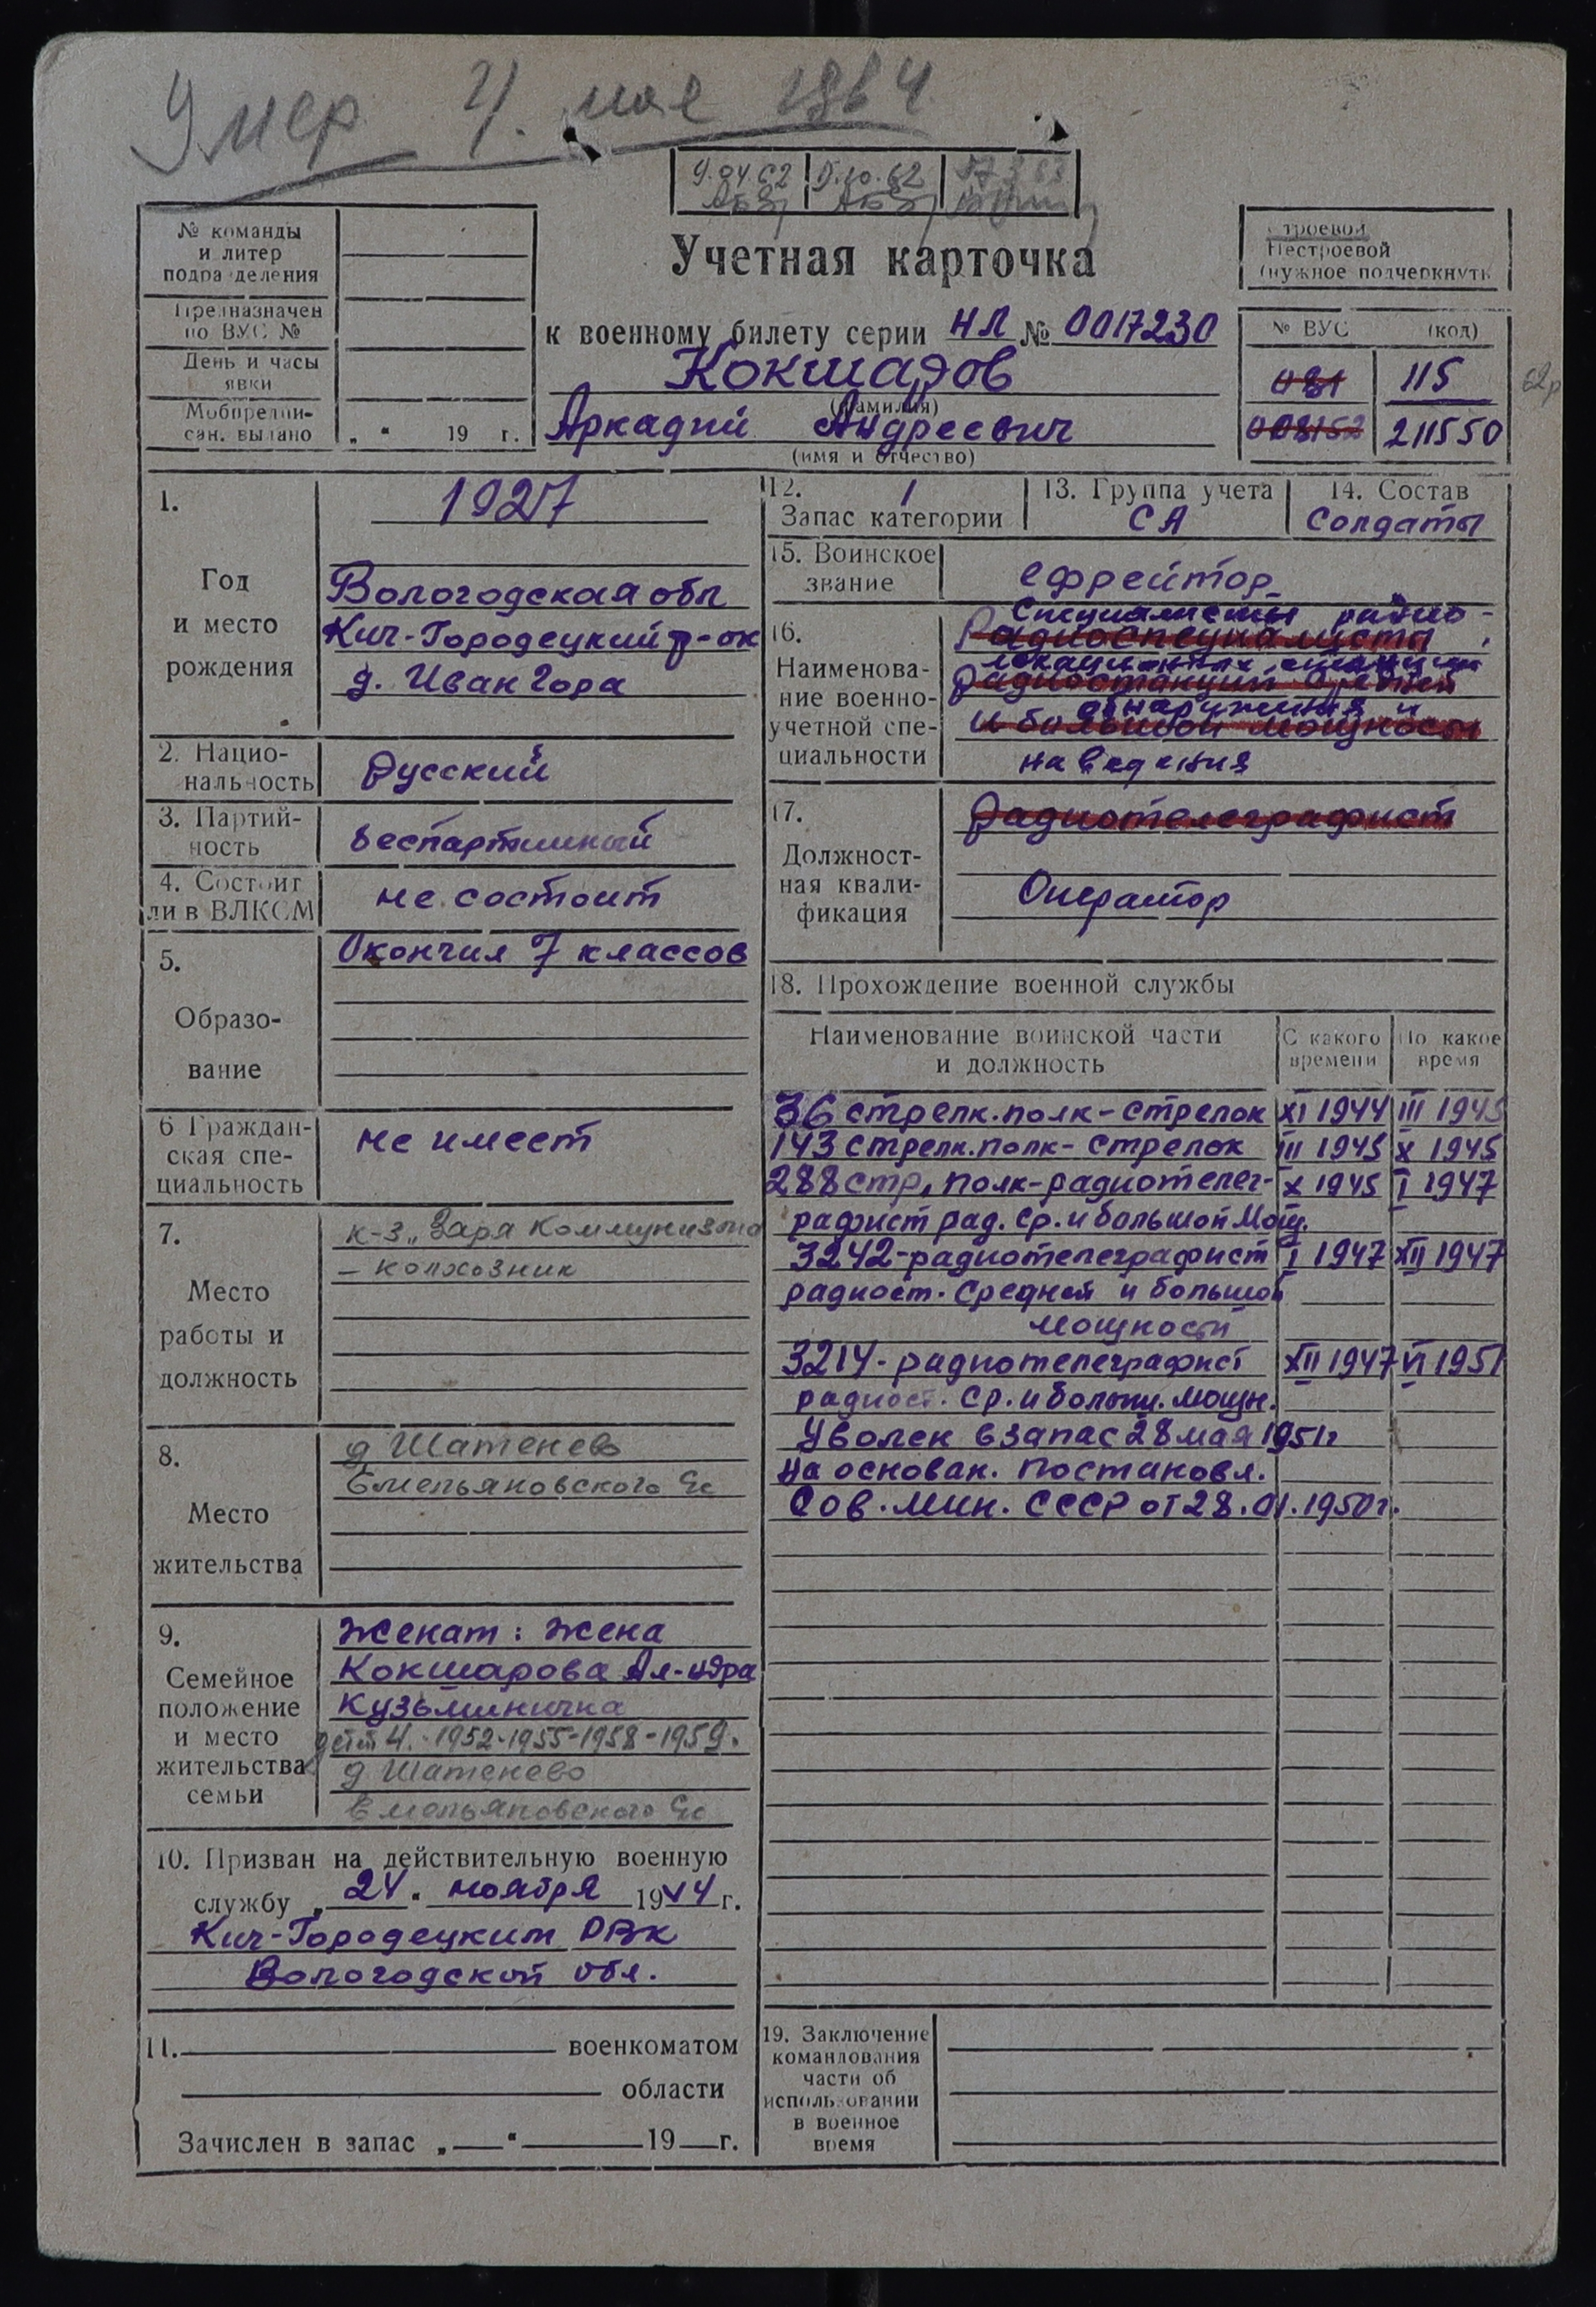 Умер 4. мая 1964
9.04.62 5.10.62
№ команды
и литер
подразделения
Предназначен
по ВУС №
День и часы
явки
Мобпредпи-
сан. выдано „ “ 19 г.
Учетная карточка
к военному билету серии НЛ № 0017230
Кокшаров
(фамилия)
Аркадий Андреевич
(имя и отчество)
Строевой
Нестроевой
(нужное подчеркнуть
№ ВУС (код)
031 115
008152 211550
1.
Год
и место
рождения
1927
Вологодская обл
Кич-Городецкий р-он
д. Иван Гора
2. Нацио-
нальность
Русский
3. Партий-
ность
беспартийный
4. Состоит
ли в ВЛКСМ
не состоит
5.
Образо-
вание
Окончил 7 классов
6 Граждан-
ская спе-
циальность
не имеет
7.
Место
работы и
должность
к-з „Заря Коммунизма
– колхозник
8.
Место
жительства
д Шатенево
Емельяновского Сс
9.
Семейное
положение
и место
жительства
семьи
Женат: жена
Кокшарова Ал-ндра
Кузьминична
дети 4. -1952-1955-1958-1959.
д Шатенево
Емельяновского Сс
10. Призван на действительную военную
службу „24“ ноября 1944 г.
Кич-Городецким РВК
Вологодской обл.
11. военкоматом
области
Зачислен в запас „ “ 19 г.
12. 1
Запас категории
13. Группа учета
СА
14. Состав
Солдаты
15. Воинское
звание
ефрейтор
16.
Наименова-
ние военно-
учетной спе-
циальности
Специалисты радио-
Радиоспециалисты
локационных станций
радиостанций средней
обнаружения и
и большой мощности
наведения
17.
Должност-
ная квали-
фикация
Радиотелеграфист
Оператор
18. Прохождение военной службы
Наименование воинской части
и должность
С какого
времени
По какое
время
36 стрелк. полк – стрелок XI 1944 III 1945
143 стрелк. полк – стрелок III 1945 X 1945
288 стр, полк – радиотелег- X 1945 I 1947
рафист рад. ср. и большой мощ.
3242 – радиотелеграфист I 1947 XII 1947
радиост. средней и большой
мощности
3214 – радиотелеграфист XII 1947 VI 1951
радиост. ср. и больш. мощн.
Уволен в запас 28 мая 1951г
на основан. постановл.
Сов. Мин. СССР от 28.01.1950г.
19. Заключение
командования
части об
использовании
в военное
время